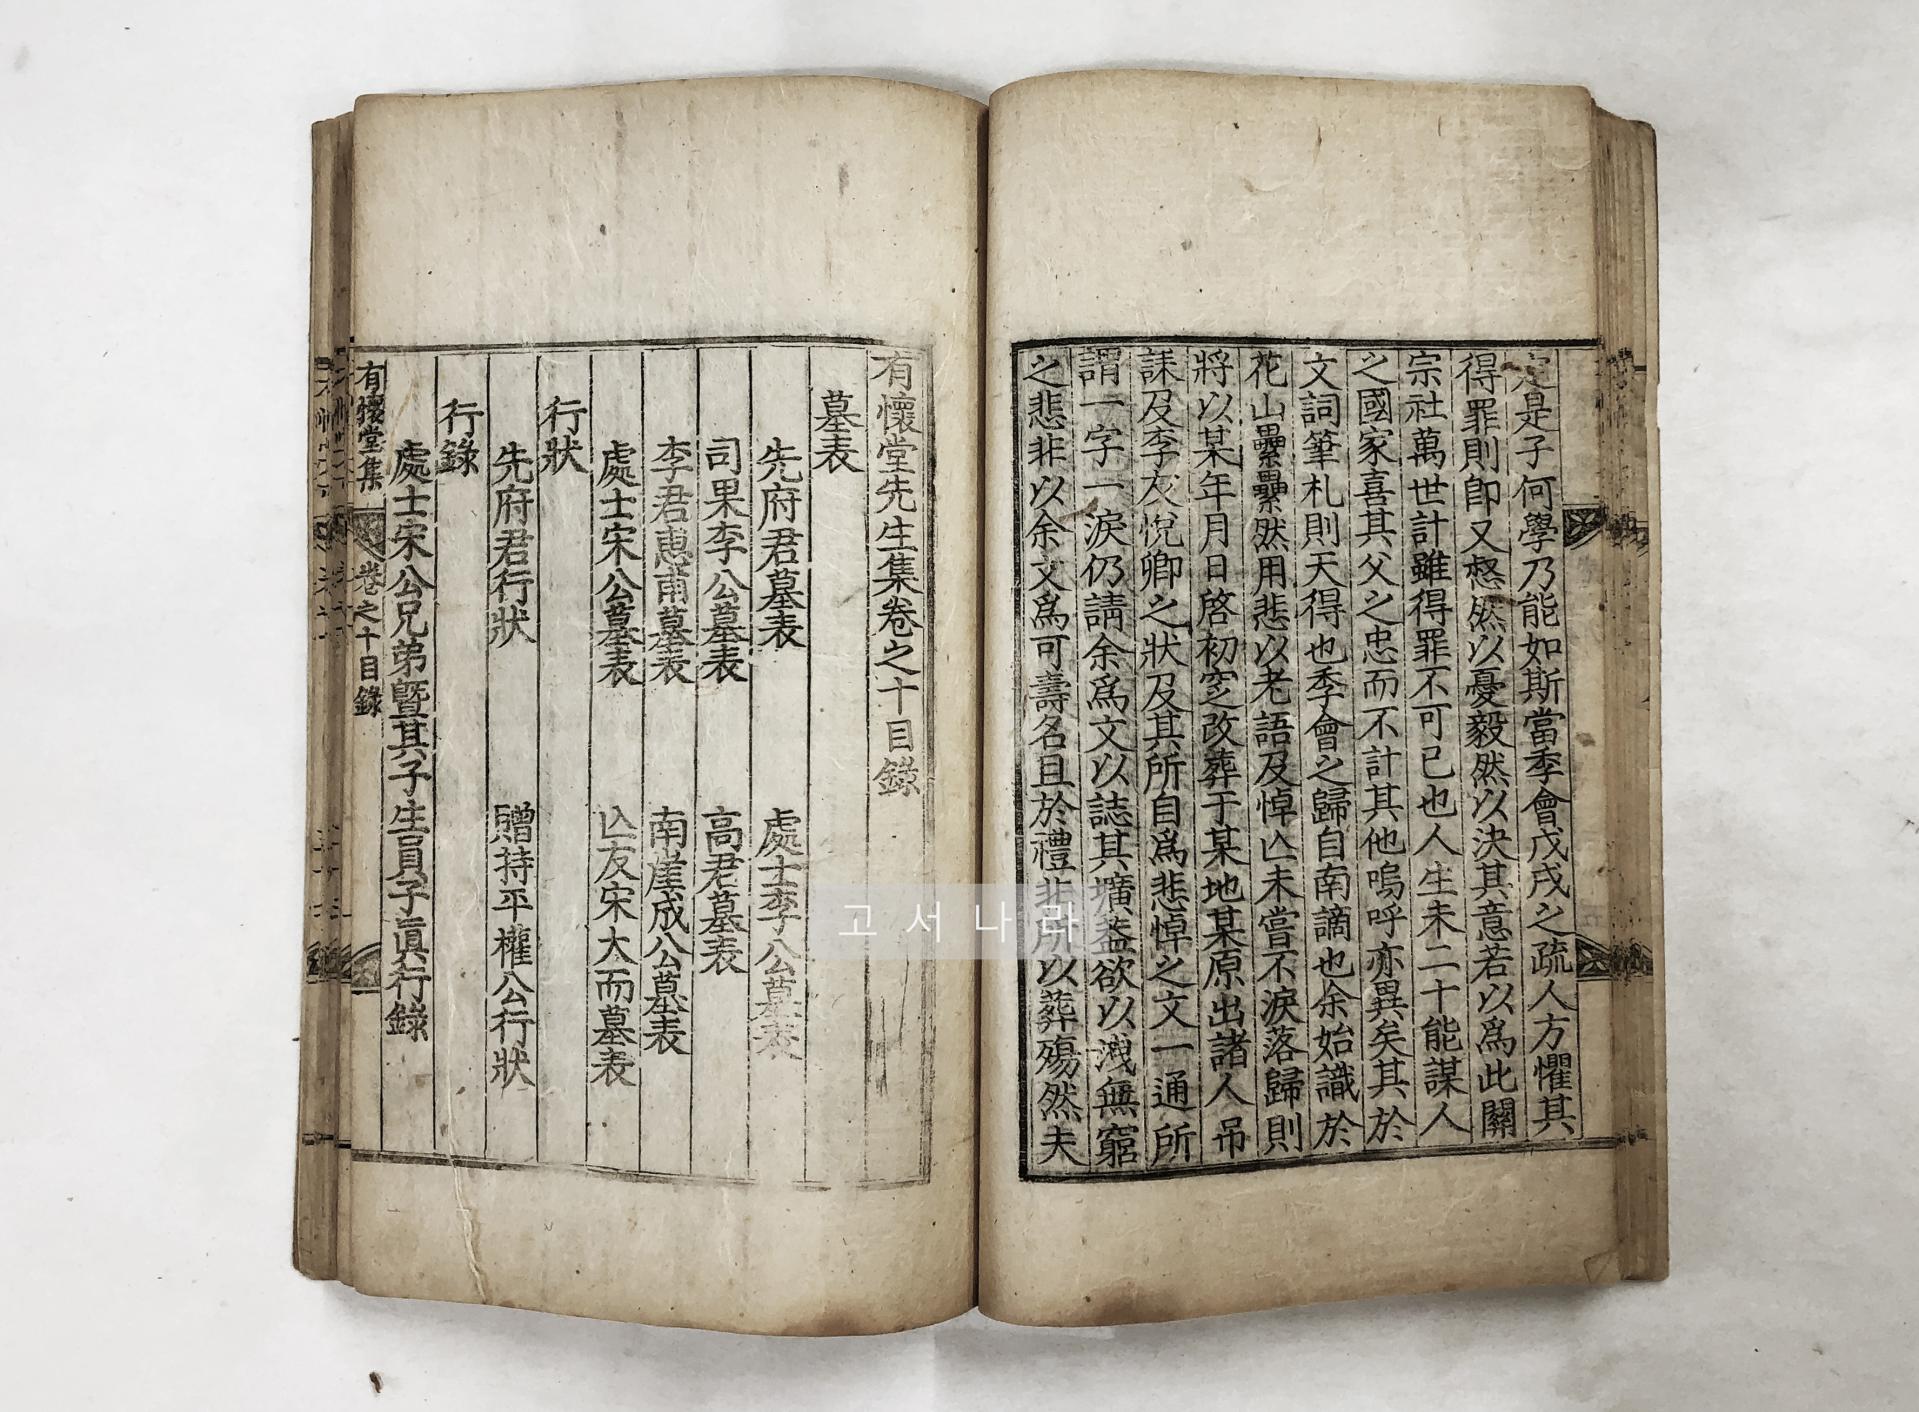 定是子何學乃能如斯當季會戊戌之疏人方懼其
得罪則卽又愀然以憂毅然以決其意若以爲此關
宗社萬世計雖得罪不可已也人生未二十能謀人
之國家喜其父之忠而不計其他嗚呼亦異矣其於
文詞筆札則天得也季會之歸自南謫也余始識於
花山纍纍然用悲以老語及悼亾未嘗不淚落歸則
將以某年月日啓初窆改葬于某地某原出諸人弔
誄及李友悅卿之狀及其所自爲悲悼之文一通所
謂一字一淚仍請余爲文以誌其壙盖欲以洩無窮
之悲非以余文爲可壽名且於禮非所以葬殤然夫
有懷堂先生集卷之十目錄
墓表
先府君墓表 處士李公墓表
司果李公墓表 高君墓表
李君惠甫墓表 南崖成公墓表
處士宋公墓表 亾友宋大而墓表
行狀
先府君行狀 贈持平權公行狀
行錄
處士宋公兄弟曁其子生員子眞行錄
有懷堂集 卷之十目錄
고서나라